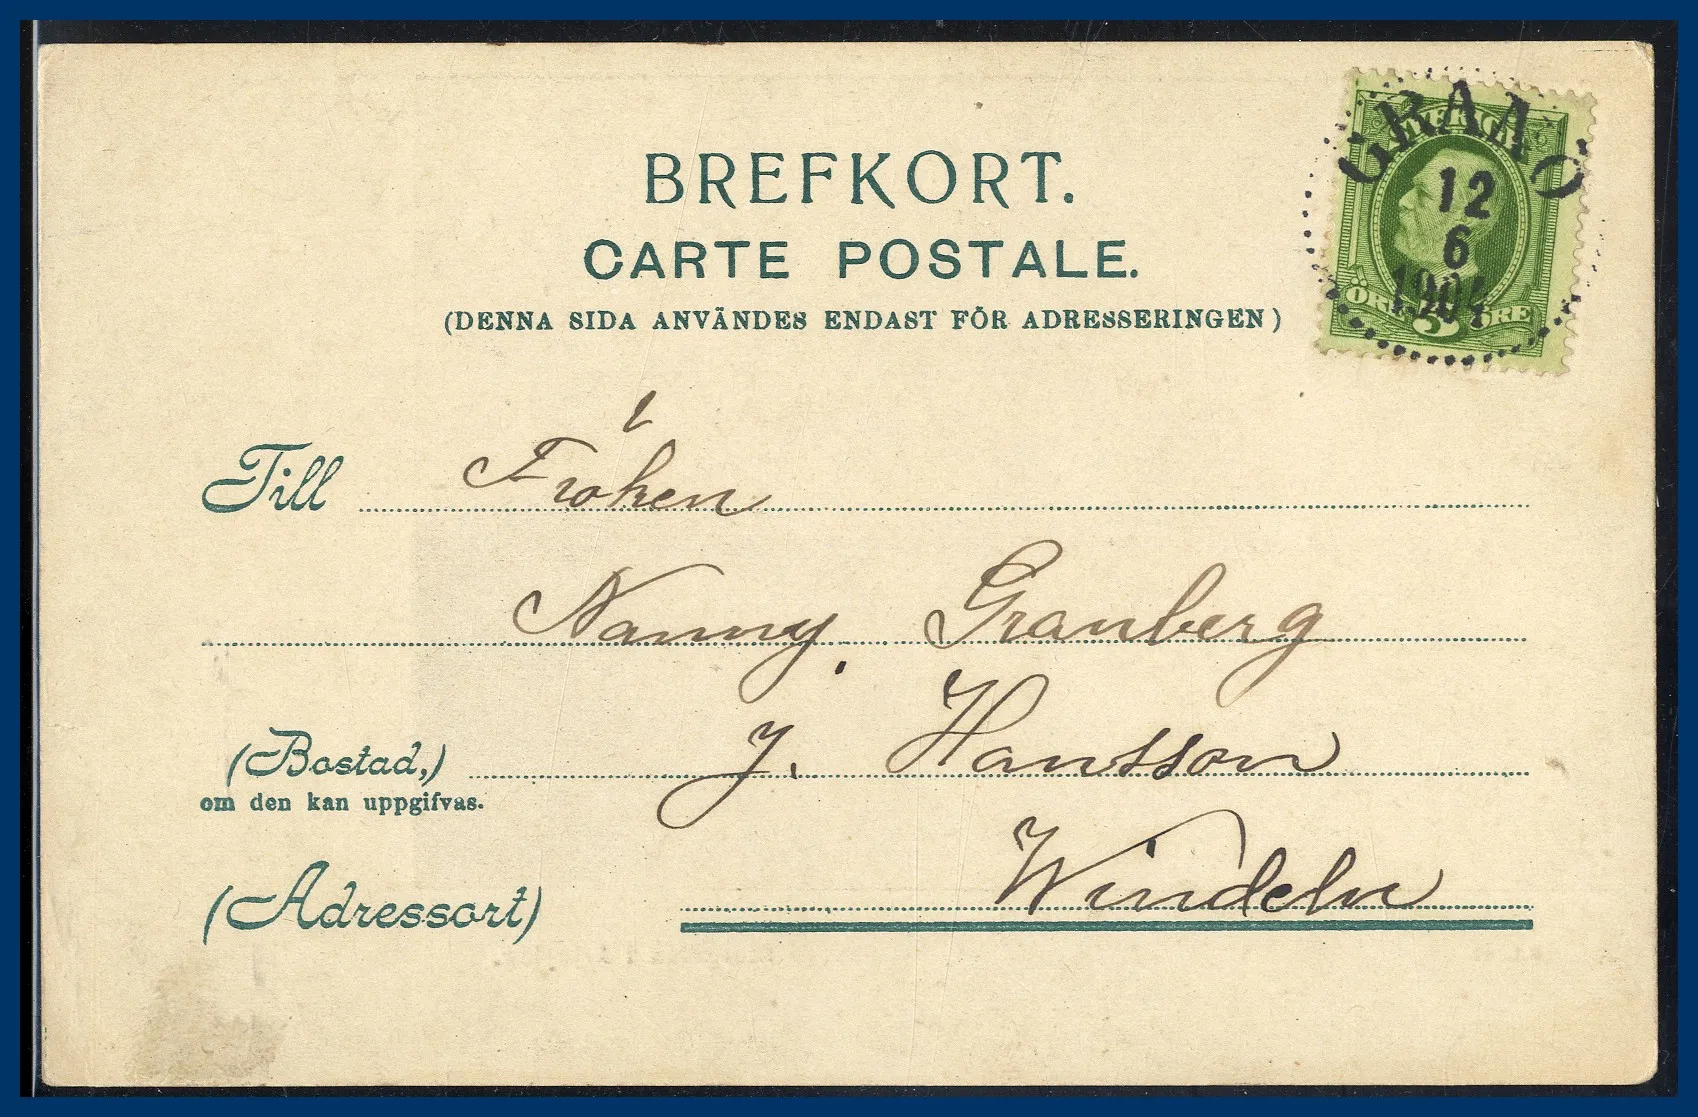 BREFKORT.
CARTE POSTALE.
(DENNA SIDA ANVÄNDES ENDAST FÖR ADRESSERINGEN)
GRAAO
SVERIGE
12
6
1904
ÖRE 5 ÖRE
Till Fröken
Nanny Granberg
(Bostad,) J. Hansson
om den kan uppgifvas.
(Adressort) Windeln